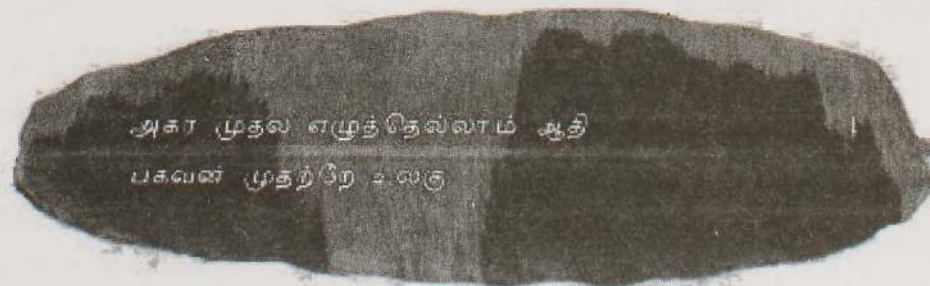 அகர முதல எழுத்தெல்லாம் ஆதி
பகவன் முதற்றே உலகு